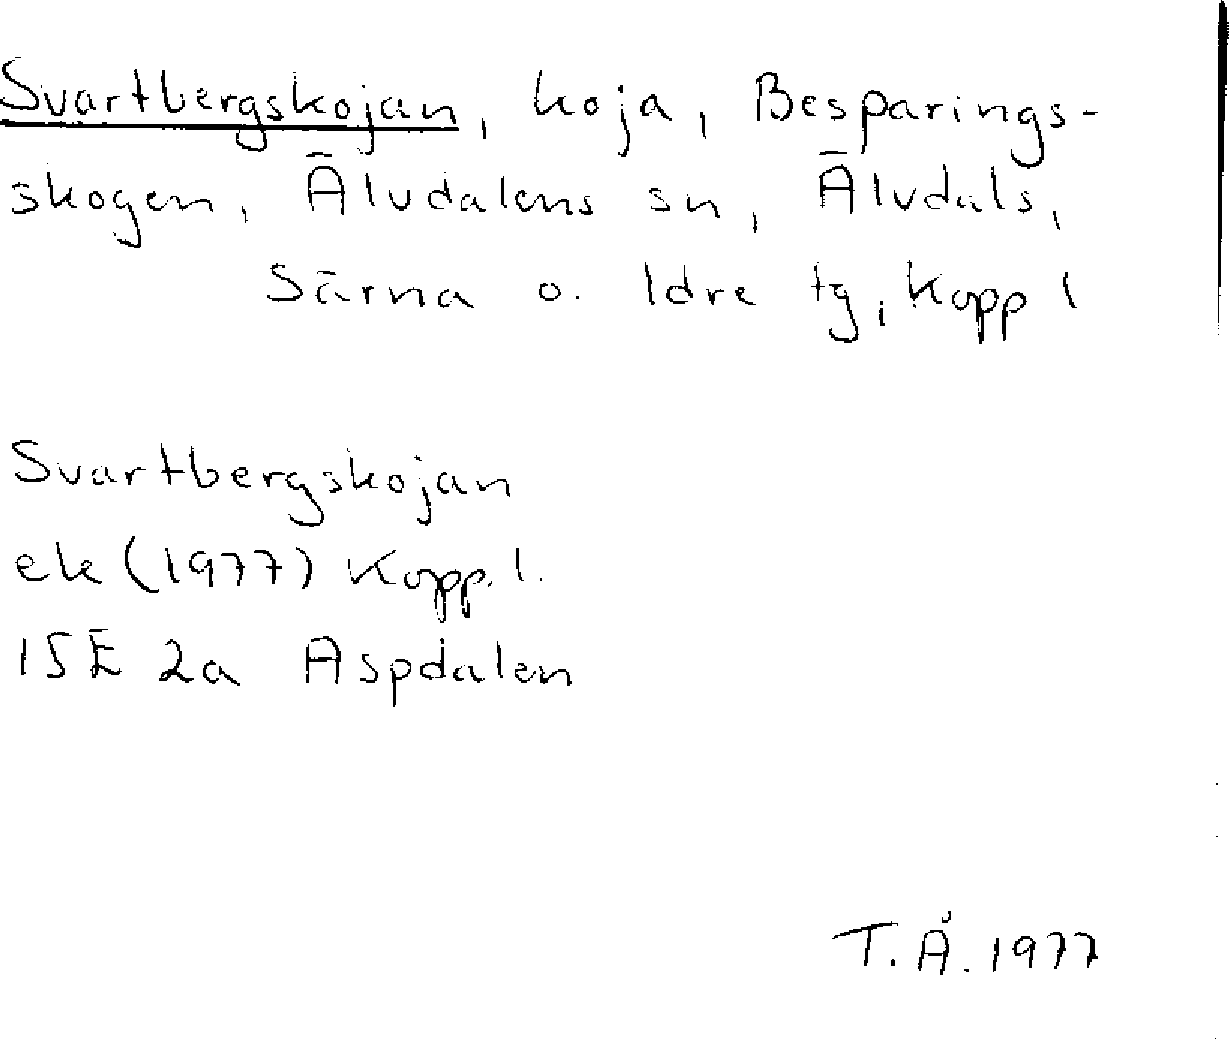 Svartbergskojan, koja, Besparings-
skogen, Älvdalens sn, Älvdals,
Särna o. Idre tg, Kopp l
Svartbergskojan
ek (1977) Kopp. l.
15E 2a Aspdalen
T. Å. 1977